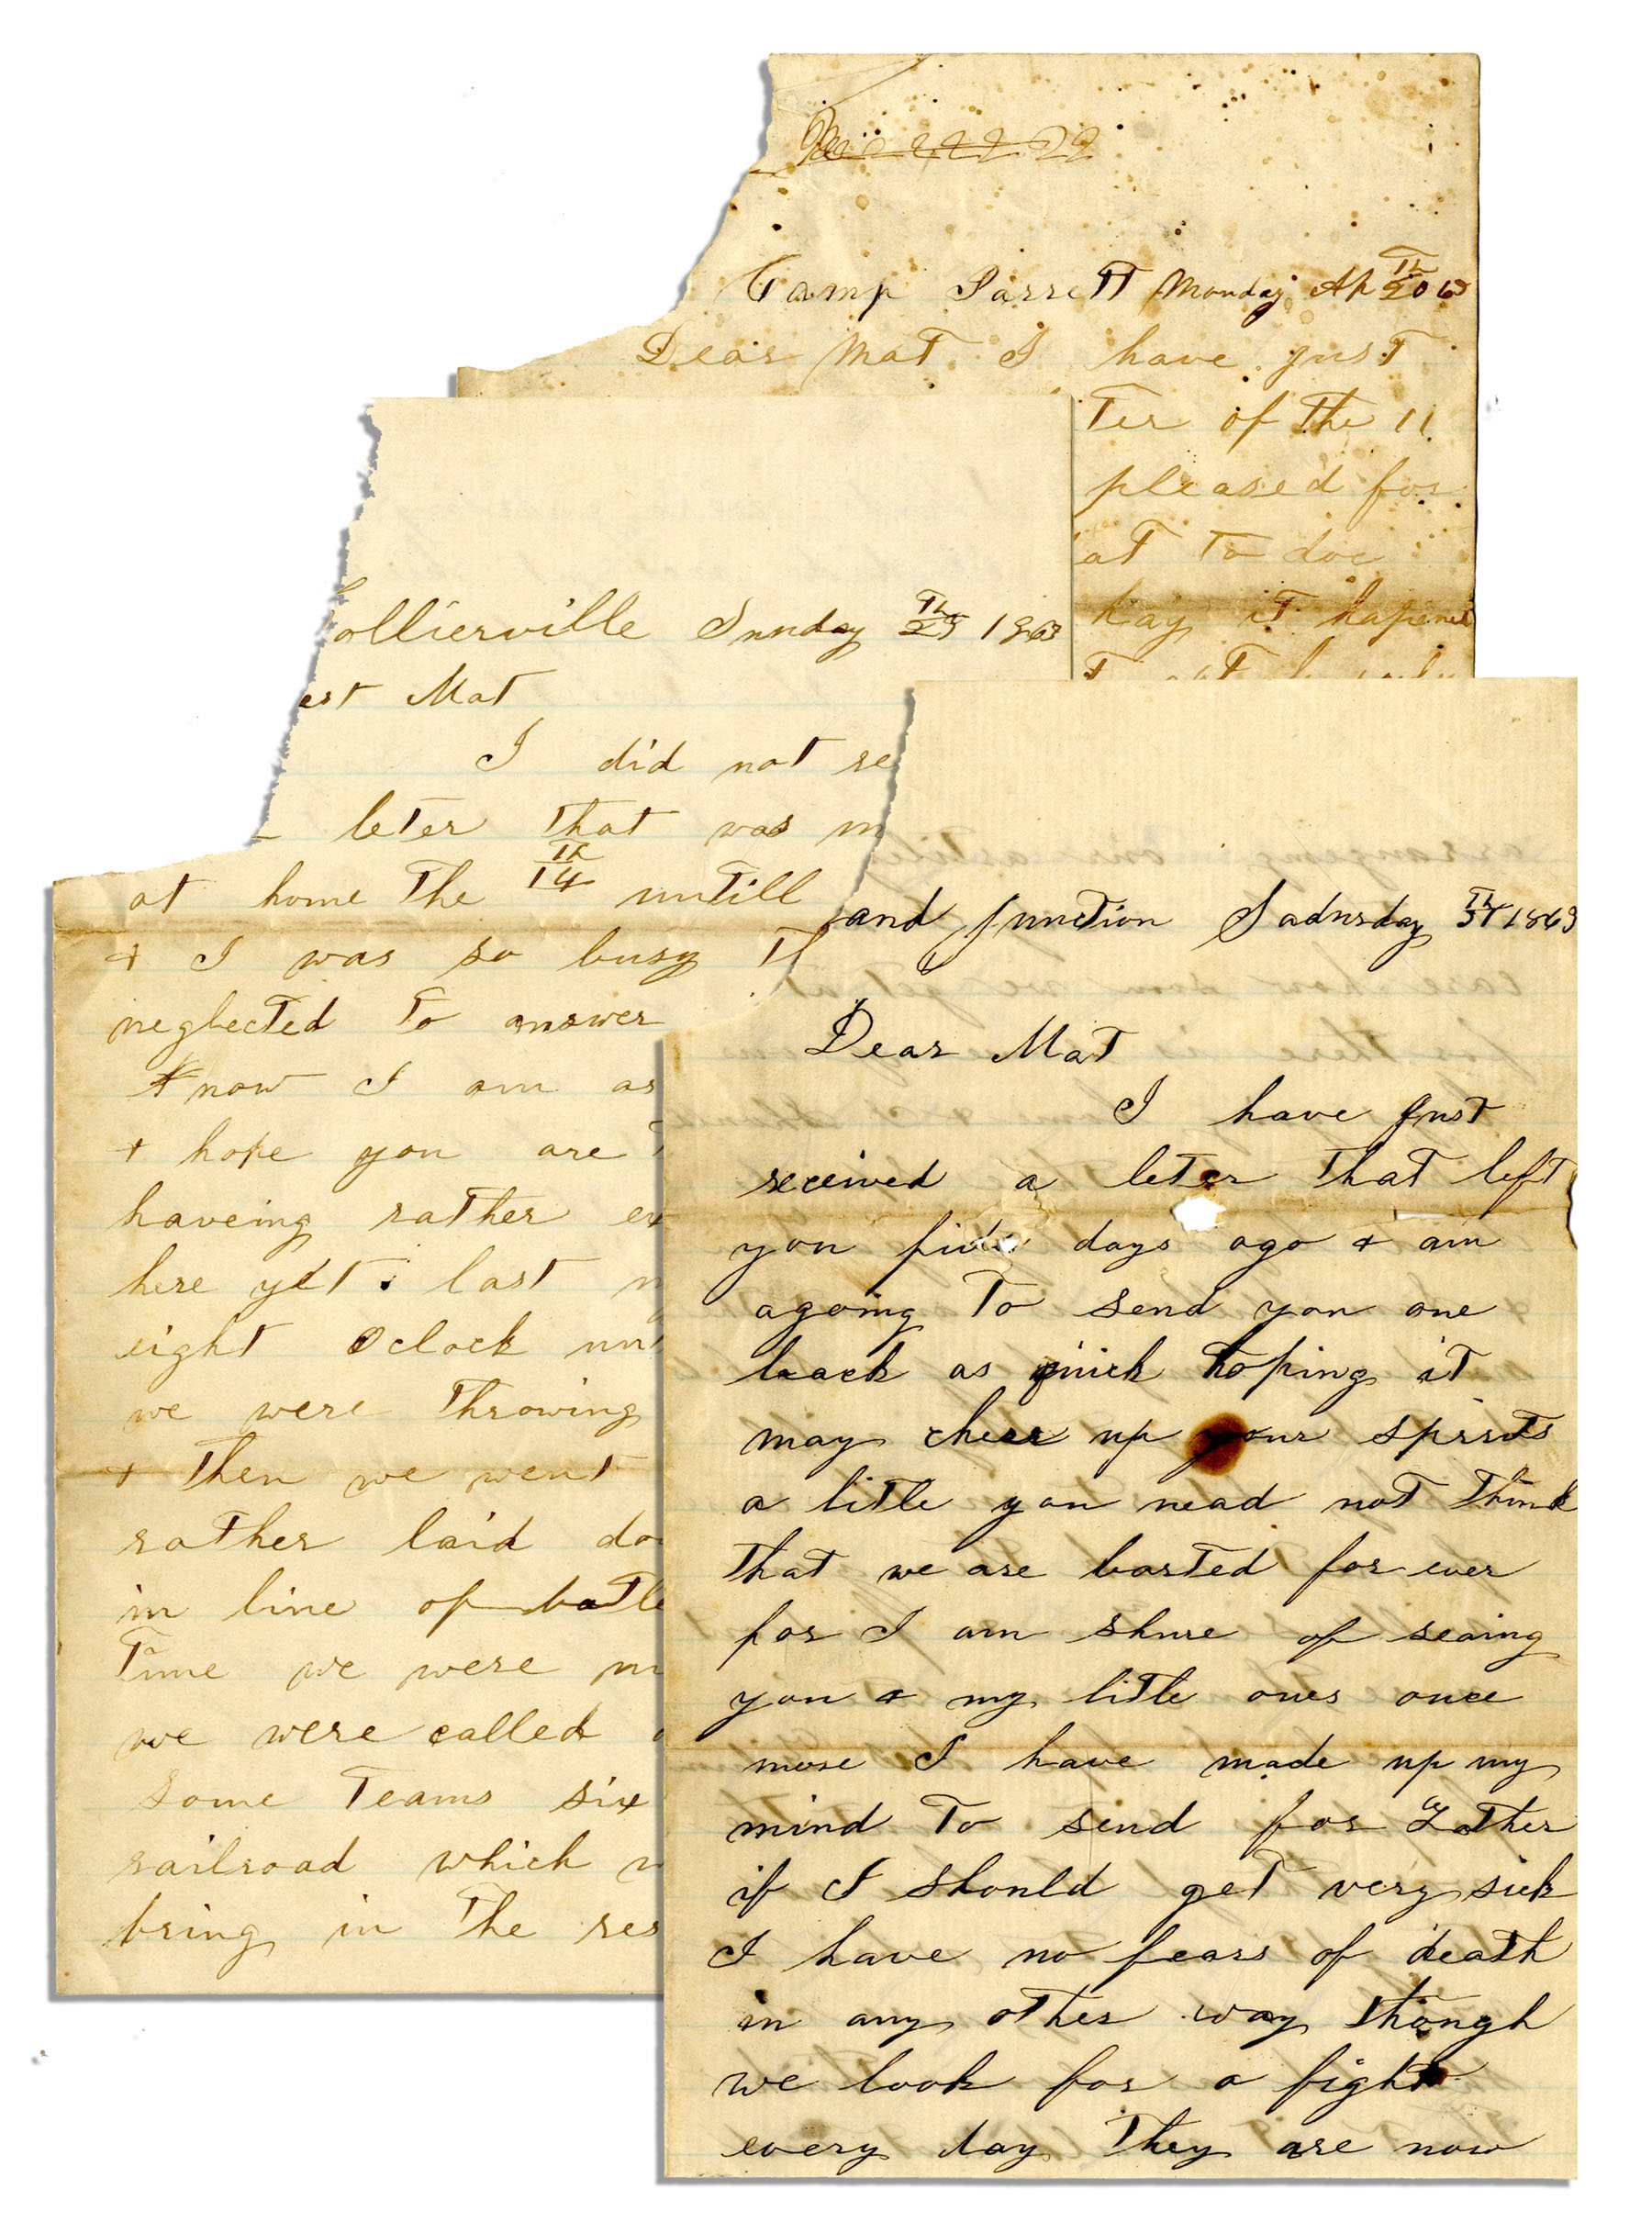 Camp Parrett Monday Ap 20th 63
Dear Mat I have just
ter of the 11
pleased for
at to doe
hay it hapened
ollierville Sunday 29th 1863
est Mat
I did not re
leter that was m
at home the 14th untill
+ I was so busy th
neglected to answer
Know I am as
+ hope you are
haveing rather ex
here yet. last n
eight Oclock un
we were throwing
+ then we went
rather laid do
in line of batle
time we were
we were called
some teams six
railroad which
bring in the res
and Junction Sadurday 31st 1863
Dear Mat
I have Just
received a leter that left
you days ago + am
agoing to send you one
back as quick hoping it
may cheer up your spirits
a litle you nead not think
that we are barted for ever
for I am shure of seaing
you + my litle ones once
more I have made up my
mind to send for Father
if I should get very sick
I have no fears of death
in any other way though
we look for a fight
every day They are now